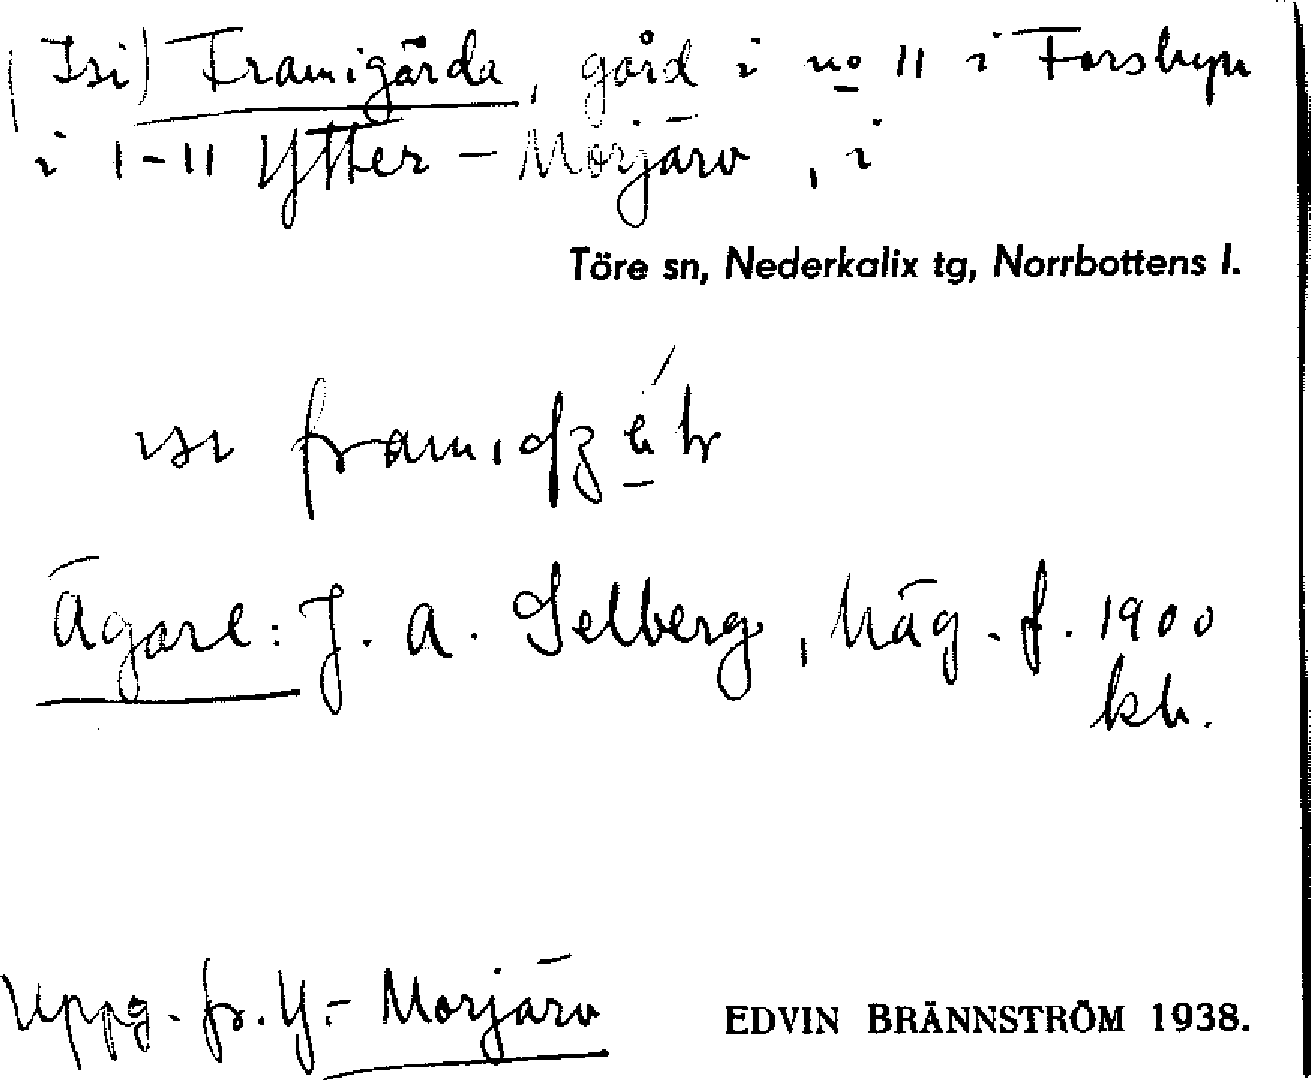 (Isi) Framigärda, gård i no 11 i Forsbyn
i 1-11 Ytter-Morjärv, i
Töre sn, Nederkalix tg, Norrbottens l.
ısı
Ägare: J. A. Selberg, häg. f. 1900
kh.
Uppg. fr. Y.-Morjärv
EDVIN BRÄNNSTRÖM 1938.